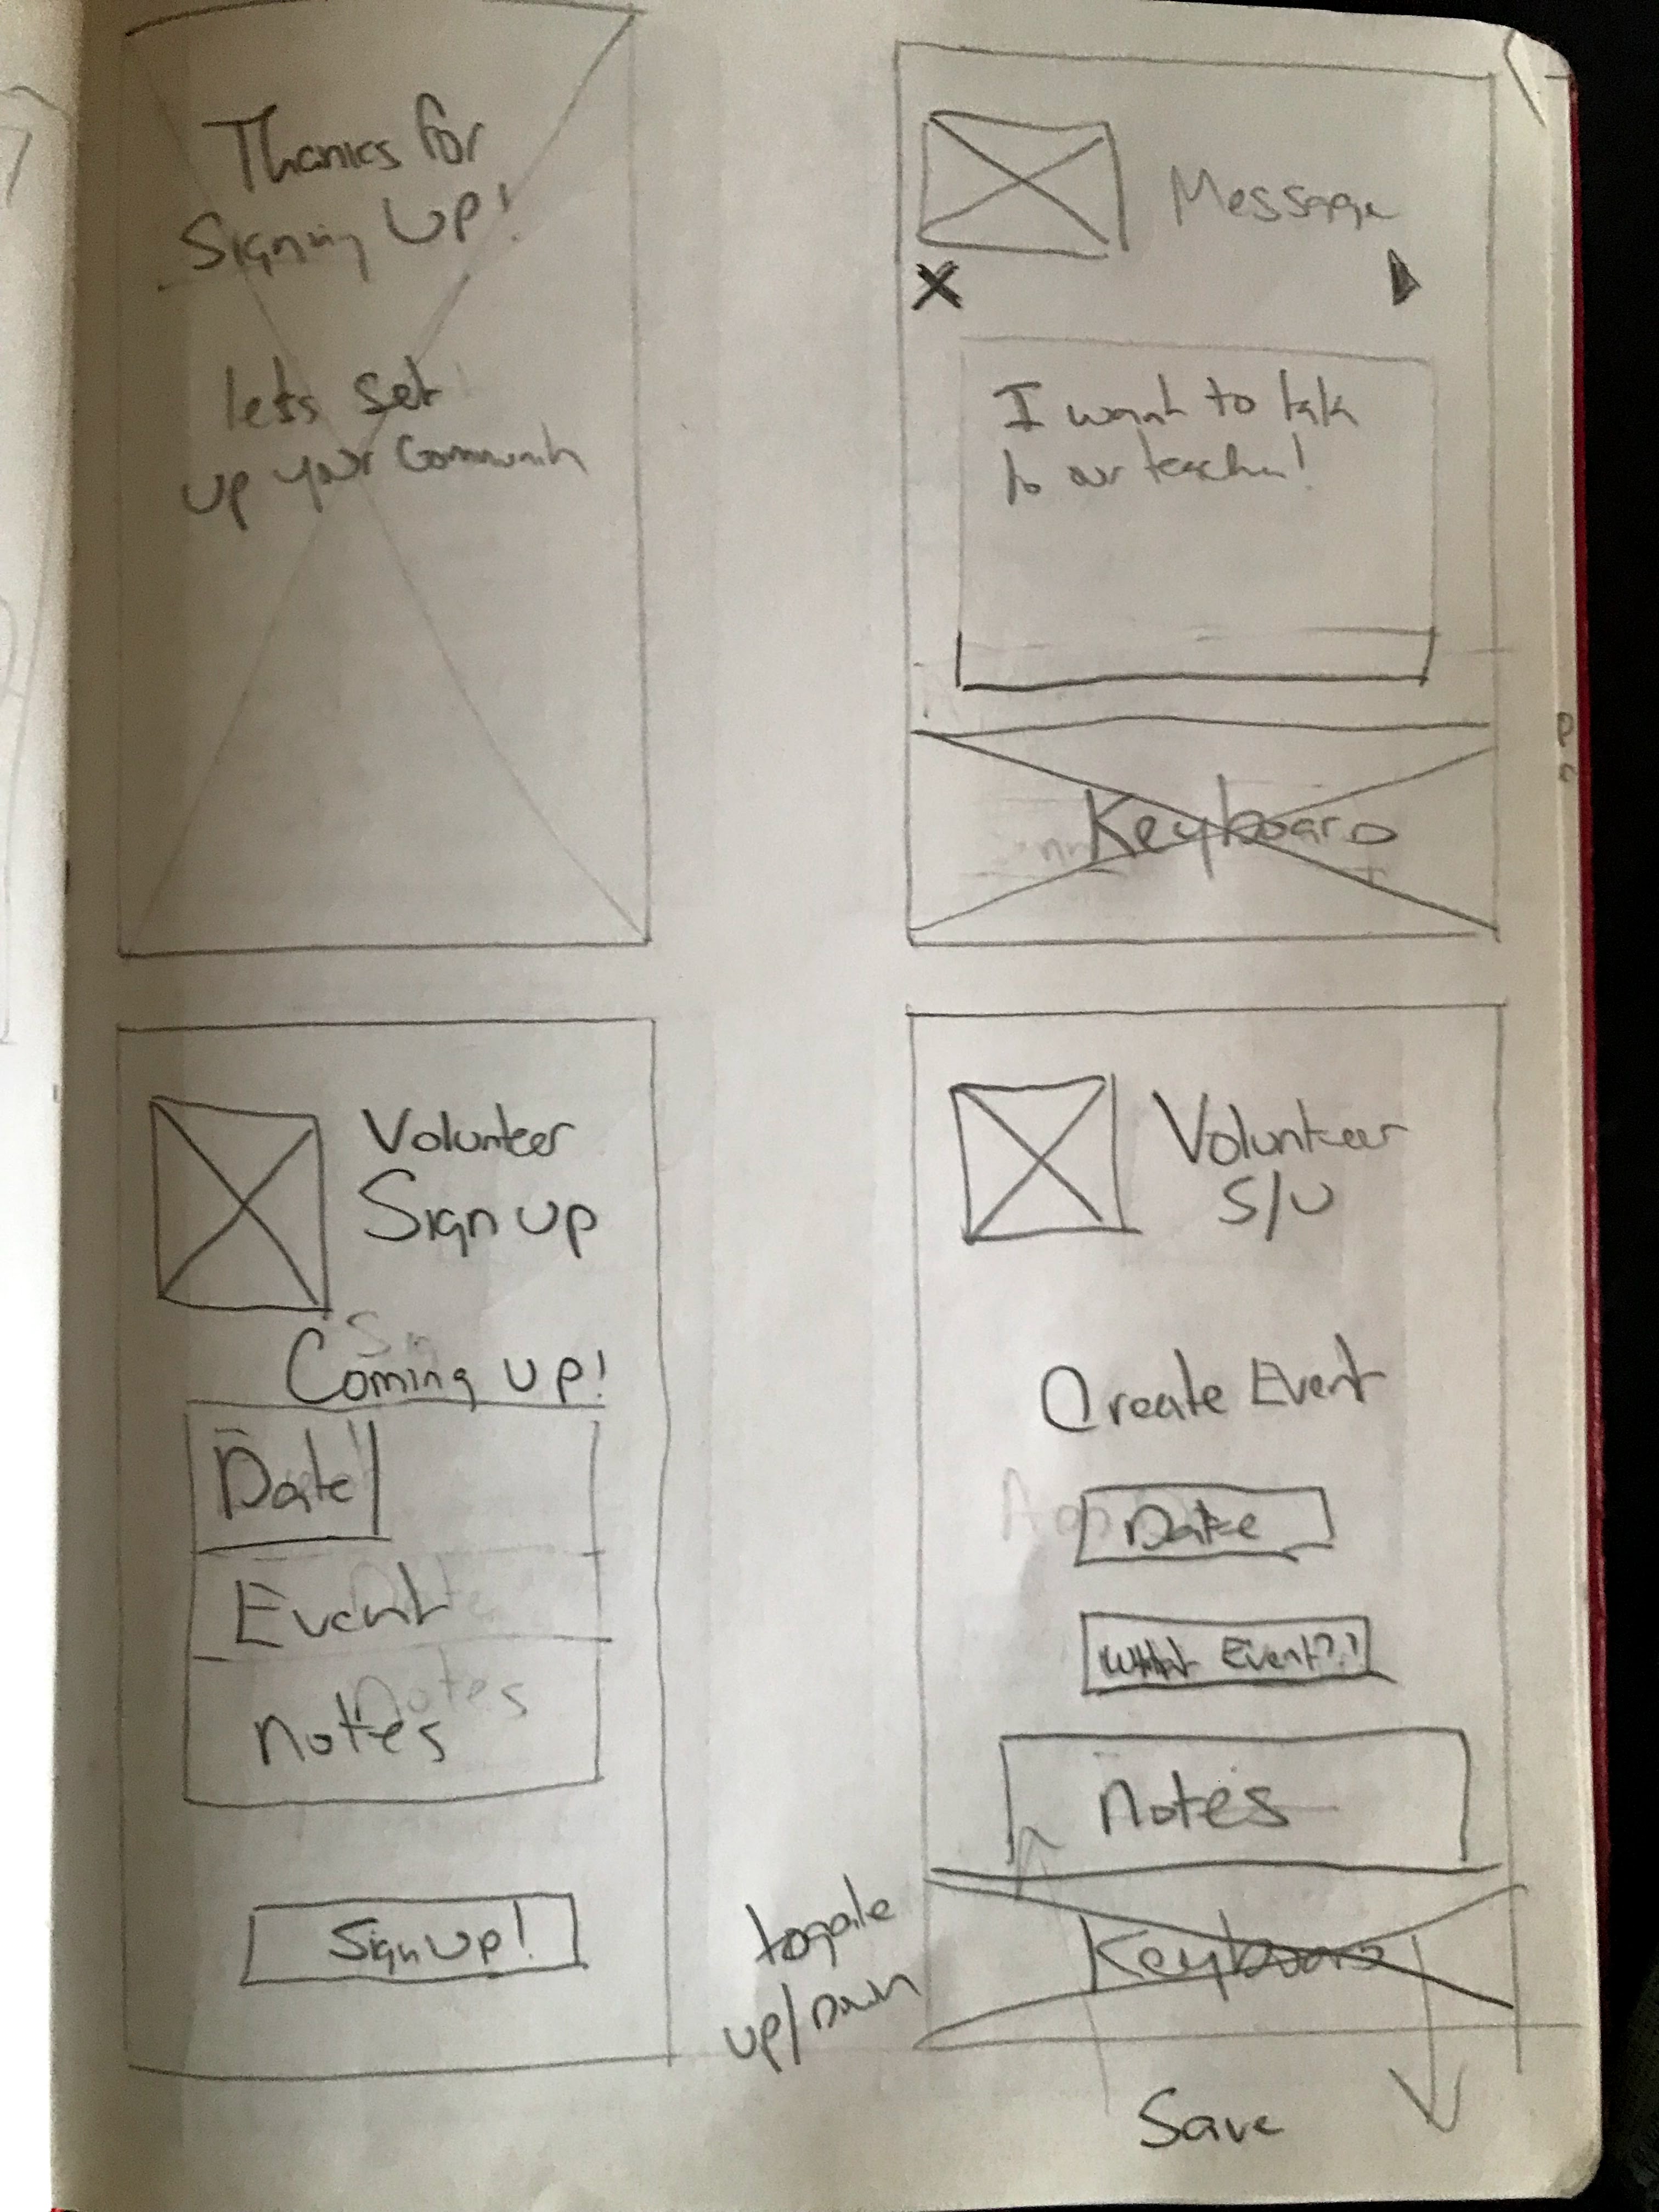 Thanks for
Signing Up!
lets set
up your Community
Message
I want to talk
to our teacher!
Keyboard
Volunteer
Sign up
Coming up!
Date
Event
Notes
Sign Up!
Volunteer
S/U
Create Event
Date
What Event?!
Notes
Keyboard
toggle
up/Down
Save